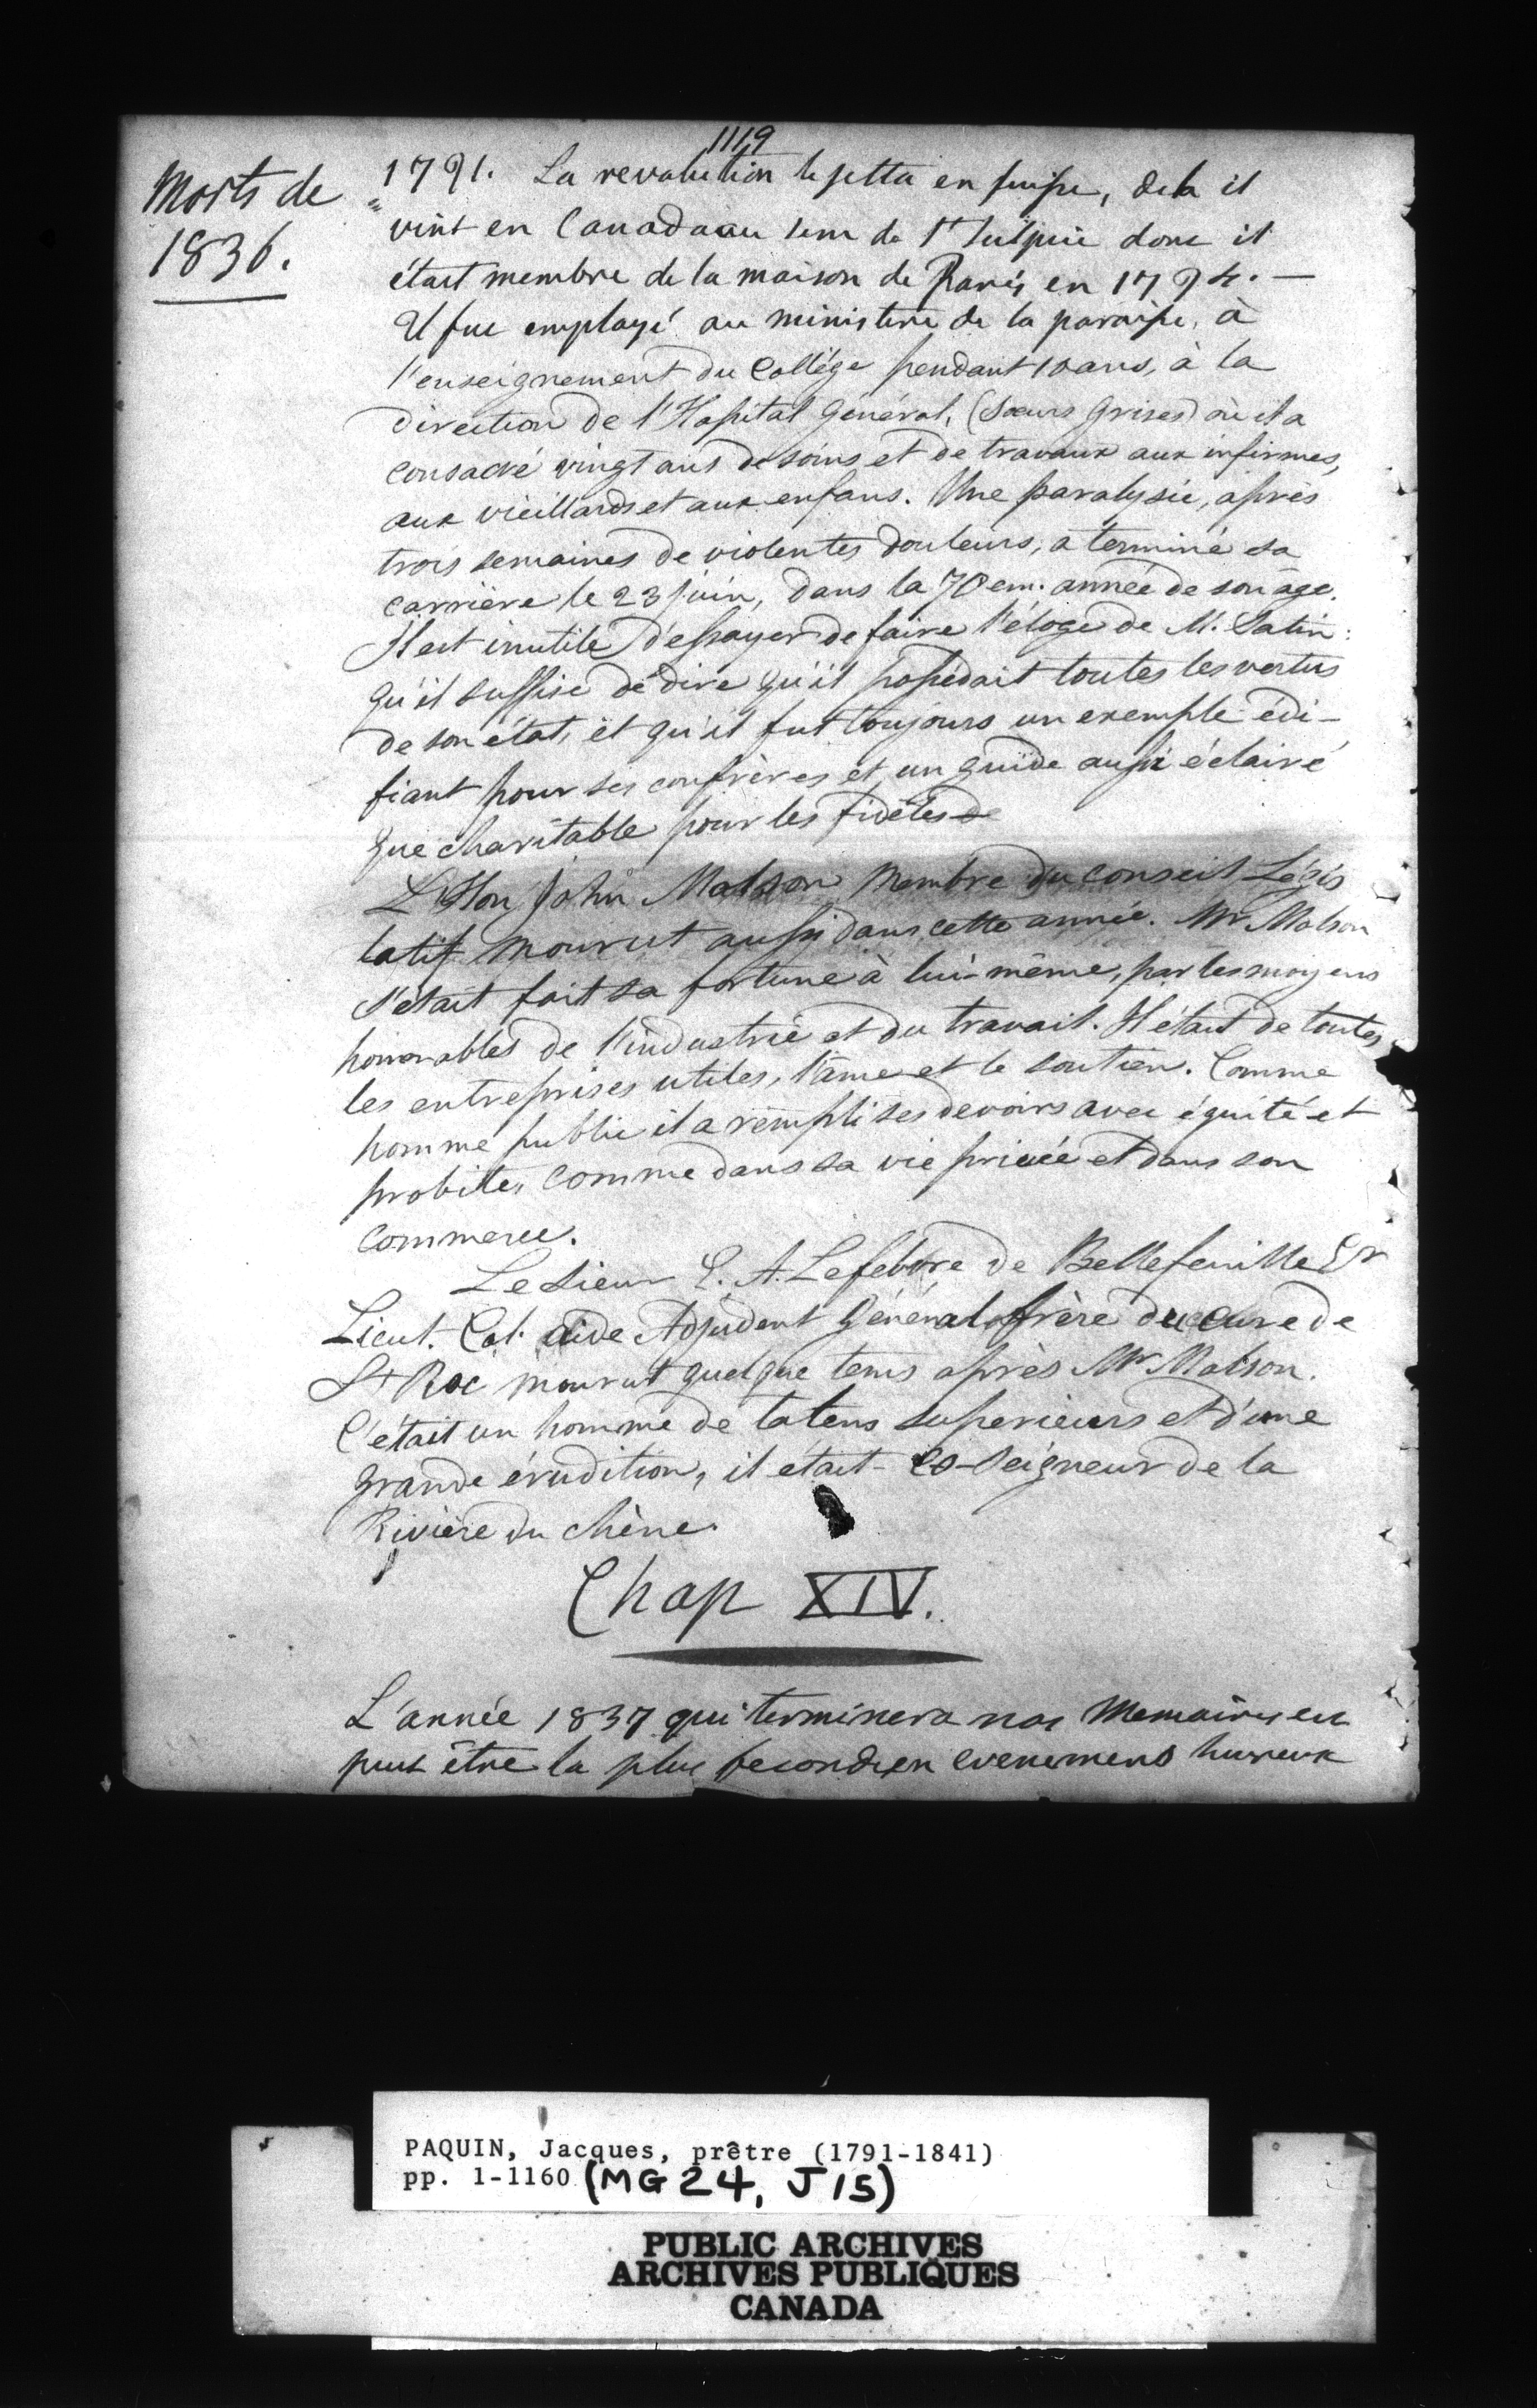 1119
Morts de
1836.
1791. La revolution le jetta en suisse, dela il
vint en Canada au sem de St Sulpice donc il
était membre de la maison de Paris en 1794. —
Il fut employé au ministere de la paroisse, à
l'enseignement du Collége pendant 10 ans, à la
direction de l'Hopital Général, (Sœurs Grises) où il a
consacré vingt ans de soins et de travaux aux infirmes,
aux vieillards et aux enfans. Une paralysie, après
trois semaines de violentes douleurs, a terminé sa
carrière le 23 juin, dans la 70 em. année de son âge.
Il est inutile d'essayer de faire l'éloge de M. Satin:
qu'il suffise de dire qu'il possédait toutes les vertus
de son état, et qu'il fut toujours un exemple édi-
fiant pour ses confrères et un guide aussi éclairé
que charitable pour les fidèles
L'Hon John Molson membre du conseil Légis
latif mourut aussi dans cette année. Mr Molson
s'était fait sa fortune à lui-même, par les moyens
honorables de l'industrie et du travail. Il était de toutes
les entreprises utiles, l'âme et le soutien. Comme
homme public il a rempli ses devoirs avec équité et
probité, comme dans sa vie privée et dans son
commerce.
Le sieur E. A. Lefebvre de Bellefeuille Er
Lieut. Col. aide Adjudent Général, frère du cure de
St Roc mourut quelque tems après Mr Molson.
C'était un homme de talens superieurs et d'une
grande érudition, il était Co-Seigneur de la
Rivière du chène.
Chap XIV.
L'année 1837 qui terminera nos Memoires est
peut être la plus feconde en evenemens heureux
PAQUIN, Jacques, prêtre (1791-1841)
pp. 1-1160 (MG 24, J 15)
PUBLIC ARCHIVES
ARCHIVES PUBLIQUES
CANADA